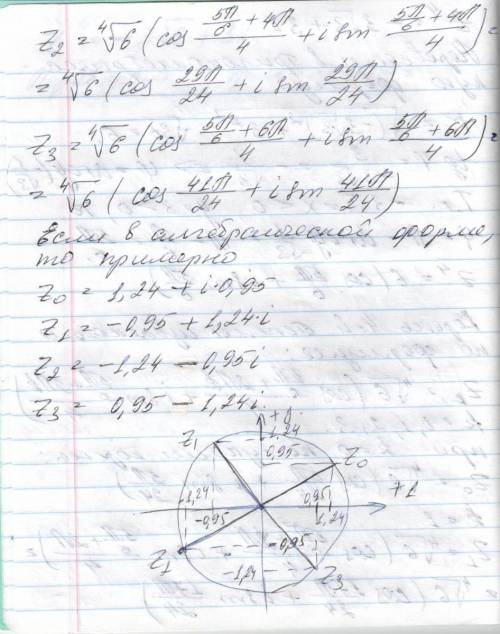 Z₂ = ⁴√6 (cos (5π/6 + 4π)/4 + i sin (5π/6 + 4π)/4) =
= ⁴√6 (cos 29π/24 + i sin 29π/24)
Z₃ = ⁴√6 (cos (5π/6 + 6π)/4 + i sin (5π/6 + 6π)/4) =
= ⁴√6 (cos 41π/24 + i sin 41π/24)
Если в алгебраической форме,
то примерно
Z₀ = 1,24 + i·0,95
Z₁ = -0,95 + 1,24·i
Z₂ = -1,24 - 0,95i
Z₃ = 0,95 - 1,24i
+i
Z₁ 1,24
0,95 Z₀
-1,24 0,95 +1
-0,95 1,24
Z₁ -0,95
-1,24 Z₃